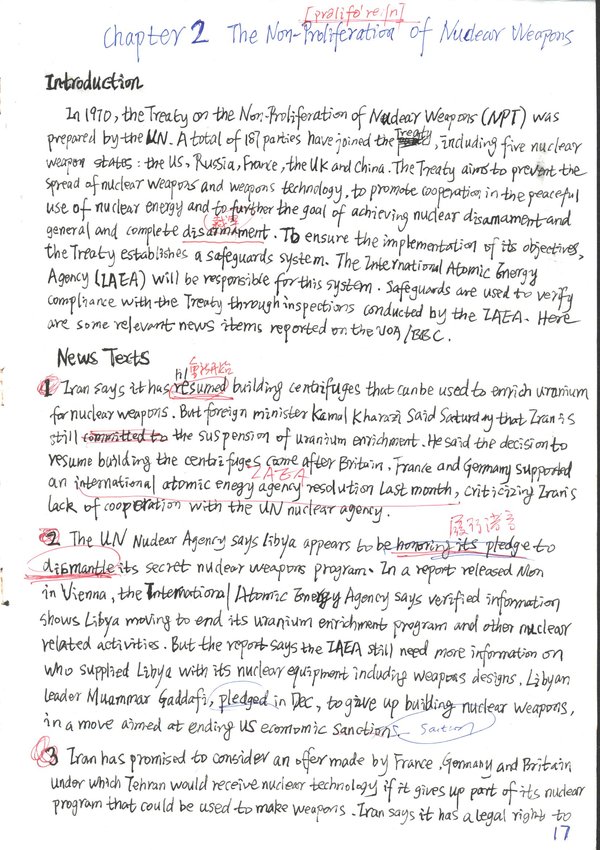 [prəlifə're:ʃn]
Chapter 2 The Non-Proliferation of Nuclear Weapons
Introduction
In 1970, the Treaty on the Non-Proliferation of Nuclear Weapons (NPT) was
prepared by the UN. A total of 187 parties have joined the Treaty, including five nuclear
weapon states: the US, Russia, France, the UK and China. The Treaty aims to prevent the
spread of nuclear weapons and weapons technology, to promote cooperation in the peaceful
use of nuclear energy and to further the goal of achieving nuclear disamament and
general and complete disarmament. To ensure the implementation of its objectives,
the Treaty establishes a safeguards system. The International Atomic Energy
Agency (IAEA) will be responsible for this system. Safeguards are used to verify
compliance with the Treaty through inspections conducted by the IAEA. Here
are some relevant news items reported on the VOA/BBC.
News Texts
重新开始
1 Iran says it has resumed building centrifuges that can be used to enrich uranium
for nuclear weapons. But foreign minister Kamal Kharazi Said Saturday that Iran is
still committed to the suspension of uranium enrichment. He said the decision to
resume building the centrifuges came after Britain, France and Germany supported
IAEA
an international atomic enegy agency resolution last month, criticizing Iran's
lack of cooperation with the UN nuclear agency.
履行诺言
2 The UN Nuclear Agency says Libya appears to be honoring its pledge to
dismantle its secret nuclear weapons program. In a report released Mon
in Vienna, the International Atomic Energy Agency says verified information
shows Libya moving to end its uranium enrichment program and other nuclear
related activities. But the report says the IAEA still need more information on
who supplied Libya with its nuclear equipment including weapons designs. Libyan
leader Muammar Gaddafi, pledged in Dec, to give up building nuclear weapons,
in a move aimed at ending US economic sanctions.
3 Iran has promised to consider an offer made by France, Germany and Britain
under which Tehran would receive nuclear technology if it gives up part of its nuclear
program that could be used to make weapons. Iran says it has a legal right to
17